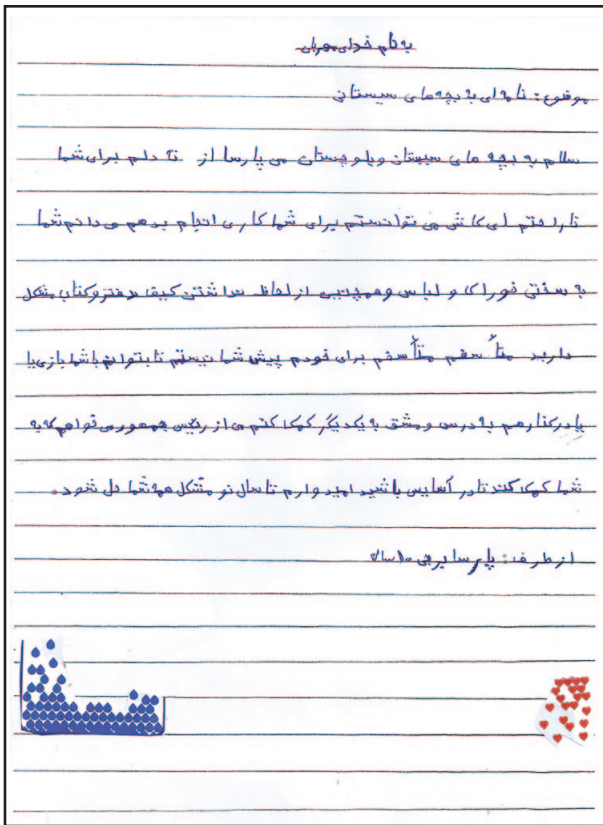 به نام خدای مهربان
موضوع: نامه ای به بچه های سیستانی
سلام به بچه های سیستان و بلوچستان من پارسا از ته دلم برای شما
ناراحتم ای کاش می توانستم برای شما کاری انجام بدهم می دانم شما
به سختی خوراک و لباس و همچنین از لحاظ نداشتن کیف دفتر و کتاب مشکل
دارید متأسفم متأسفم برای خودم پیش شما نیستم تا بتوانم باشما بازی یا
یا در کنار هم به درس و مشق به یکدیگر کمک کنم من از رئیس جمهور می خواهم که به
شما کمک کند تا در آسایس باشید امیدوارم تا سال نو مشکل همه شما حل شود.
از طرف: پارسا ۱۰ ساله